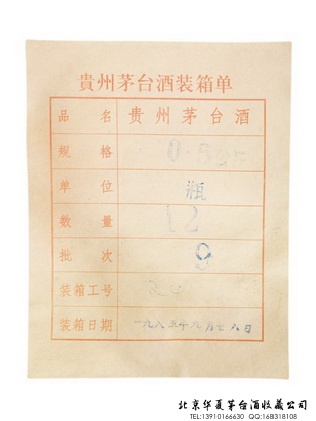 貴州茅台酒装箱单
品名 贵州茅台酒
规格
单位 瓶
数量 12
批次 9
装箱工号
装箱日期 一九八五年九月廿八日
北京华夏茅台酒收藏公司
TEL:13910166630 QQ:168318108